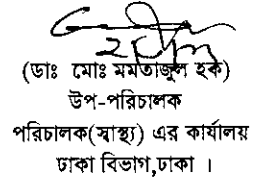 (ডাঃ মোঃ মমতাজুল হক)
উপ-পরিচালক
পরিচালক(স্বাস্থ্য) এর কার্যালয়
ঢাকা বিভাগ,ঢাকা ।